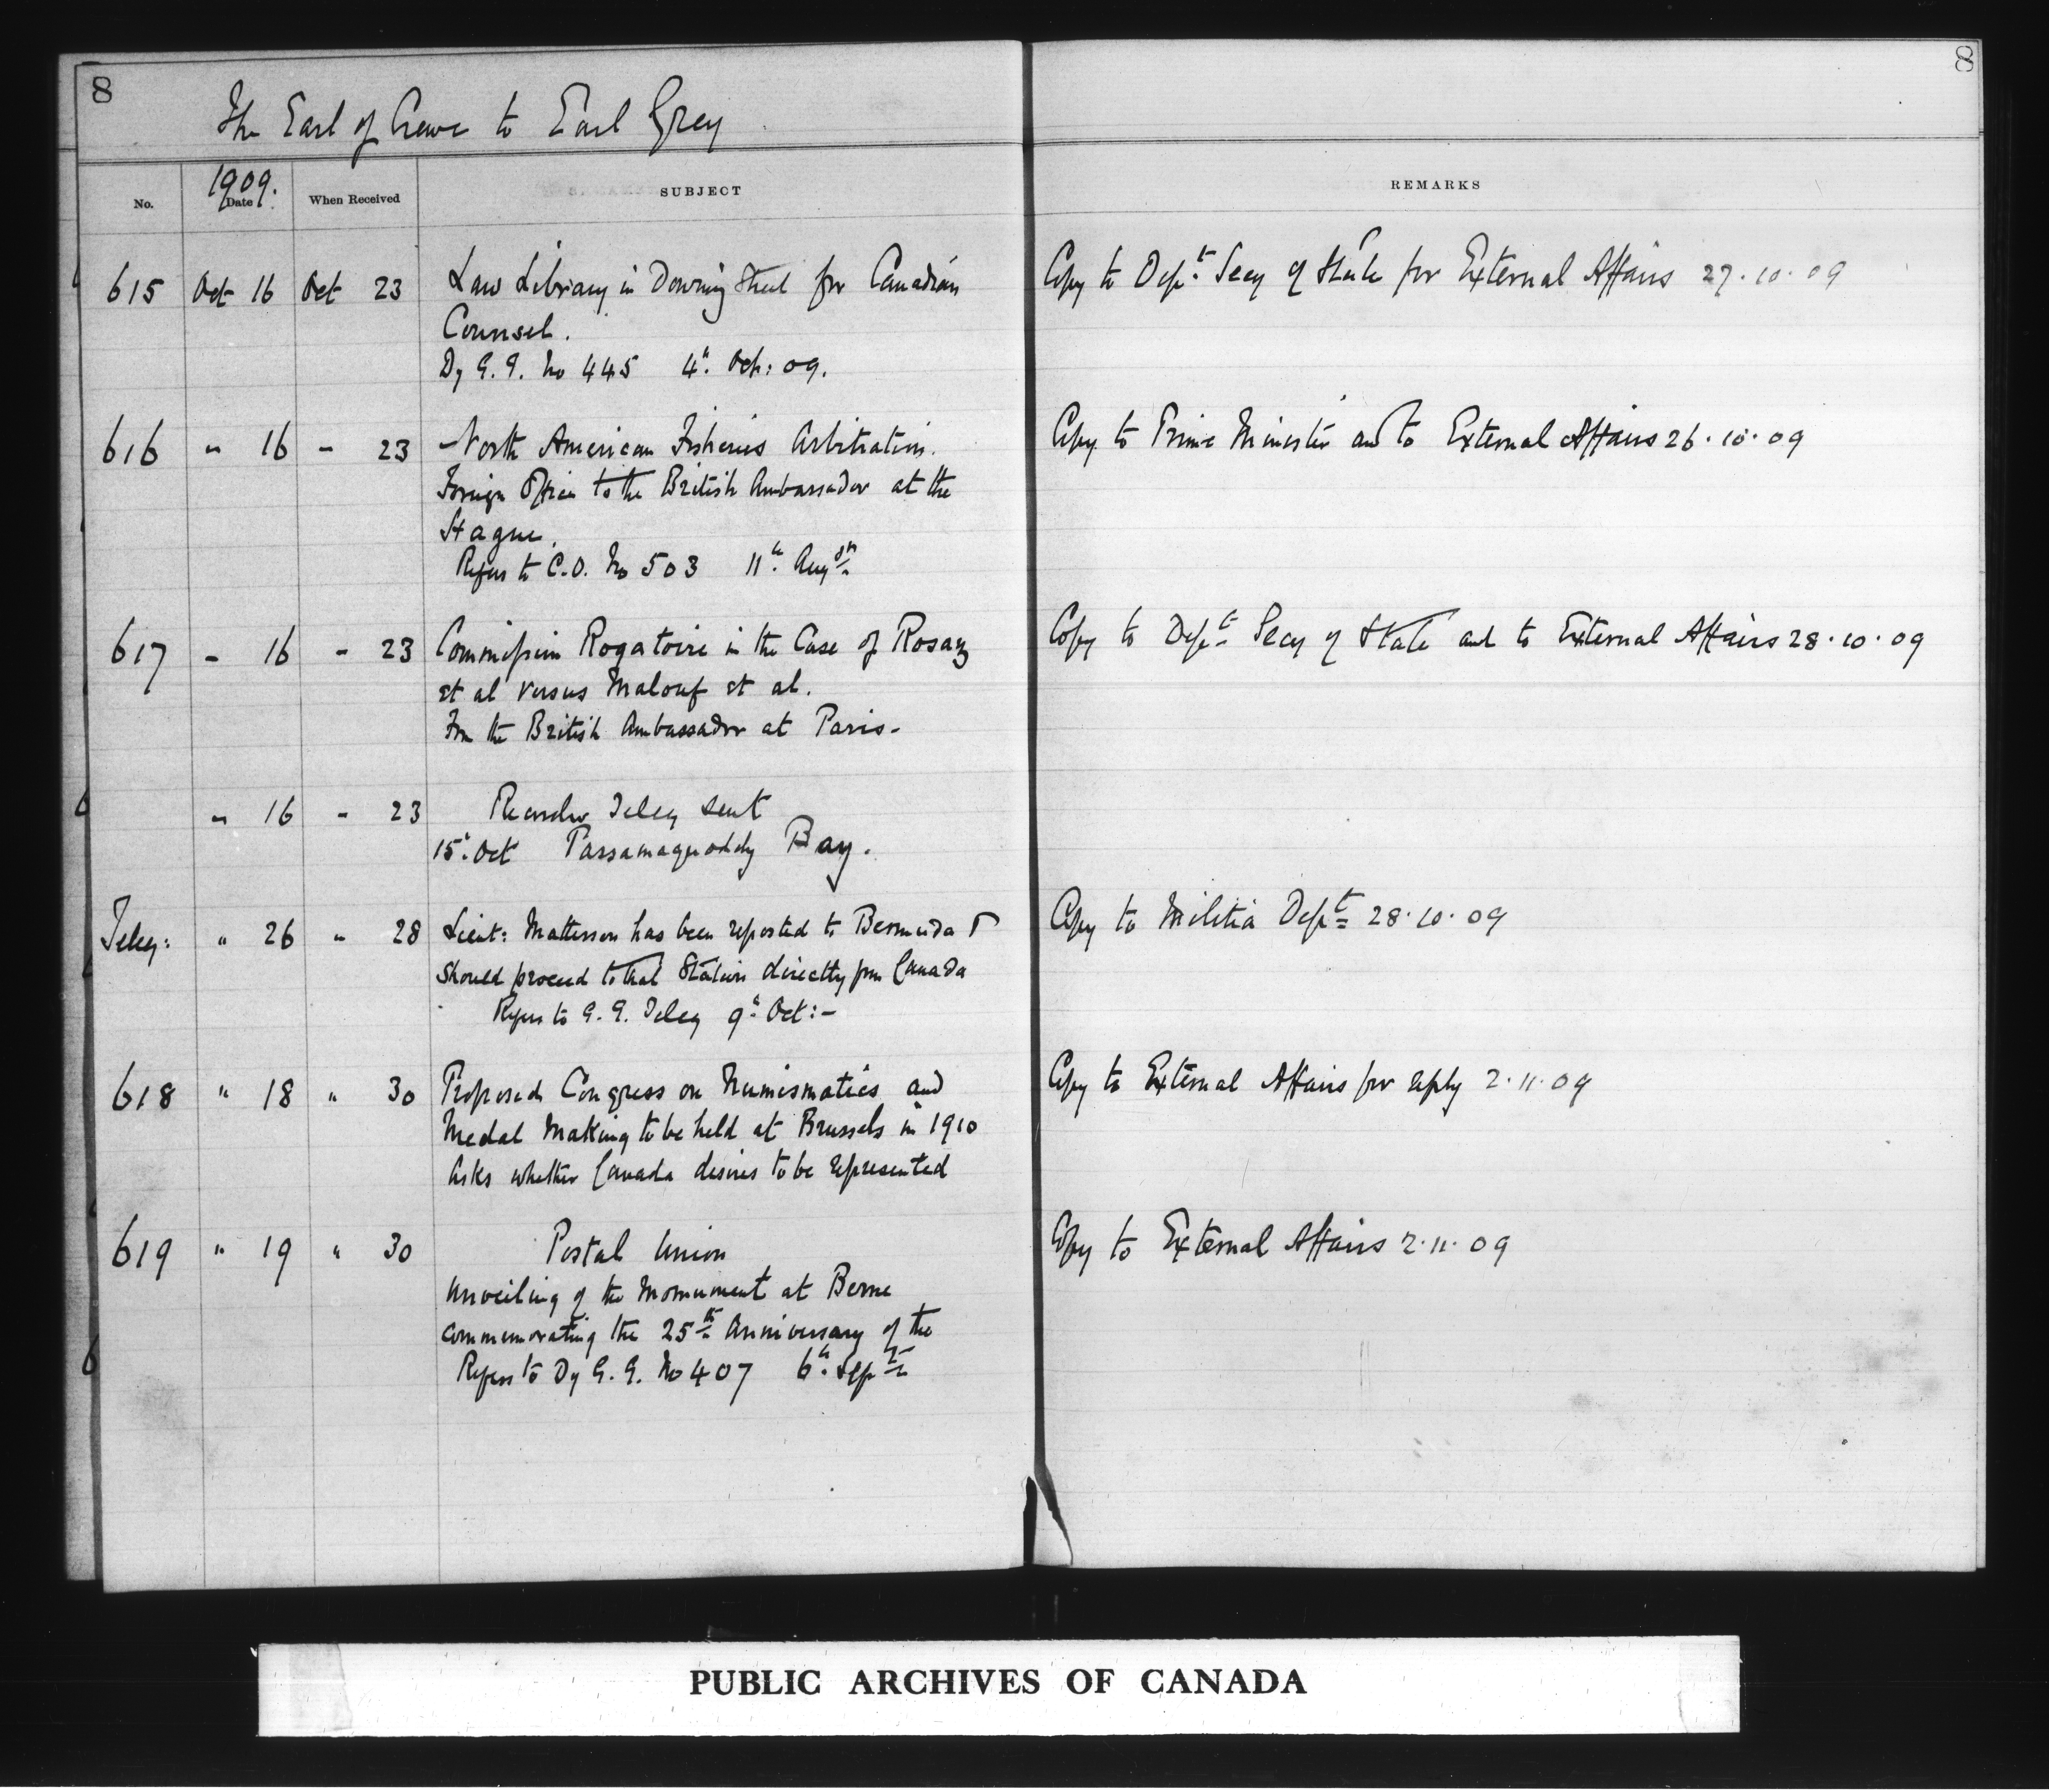 8
8
The Earl of Crewe to Earl Grey
1909.
No.
Date
When Received
SUBJECT
REMARKS
615 Oct 16 Oct 23 Law Library in Downing Street for Canadian
Counsel.
Dy G. G. No 445 4th Oct: 09.
Copy to Dept Secy of State for External Affairs 27.10.09
616 " 16 - 23 North American Fisheries Arbitration.
Foreign Office to the British Ambassador at the
Hague.
Refers to C.O. No 503 11th Augst
Copy to Prime Minister and to External Affairs 26.10.09
617 - 16 - 23 Commission Rogatoire in the Case of Rosay
et al versus Malouf et al.
Fm the British Ambassador at Paris-
Copy to Dept Secy of State and to External Affairs 28.10.09
" 16 - 23 Teleg sent
15th Oct Passamaquoddy Bay.
Teleg: " 26 " 28 Lieut: Matterson has been reported to Bermuda &
should proceed to that Station directly fm Canada
Refers to G. G. Teleg 9th Oct:-
Copy to Militia Dept 28.10.09
618 " 18 " 30 Proposed Congress on Numismatics and
Medal Making to be held at Brussels in 1910
Asks whether Canada desires to be represented
Copy to External Affairs for reply 2.11.09
619 " 19 " 30 Postal Union
Unveiling of the Monument at Berne
commemorating the 25th Anniversary of the
Refers to Dy G. G. No 407 6th Sept
Copy to External Affairs 2.11.09
PUBLIC ARCHIVES OF CANADA